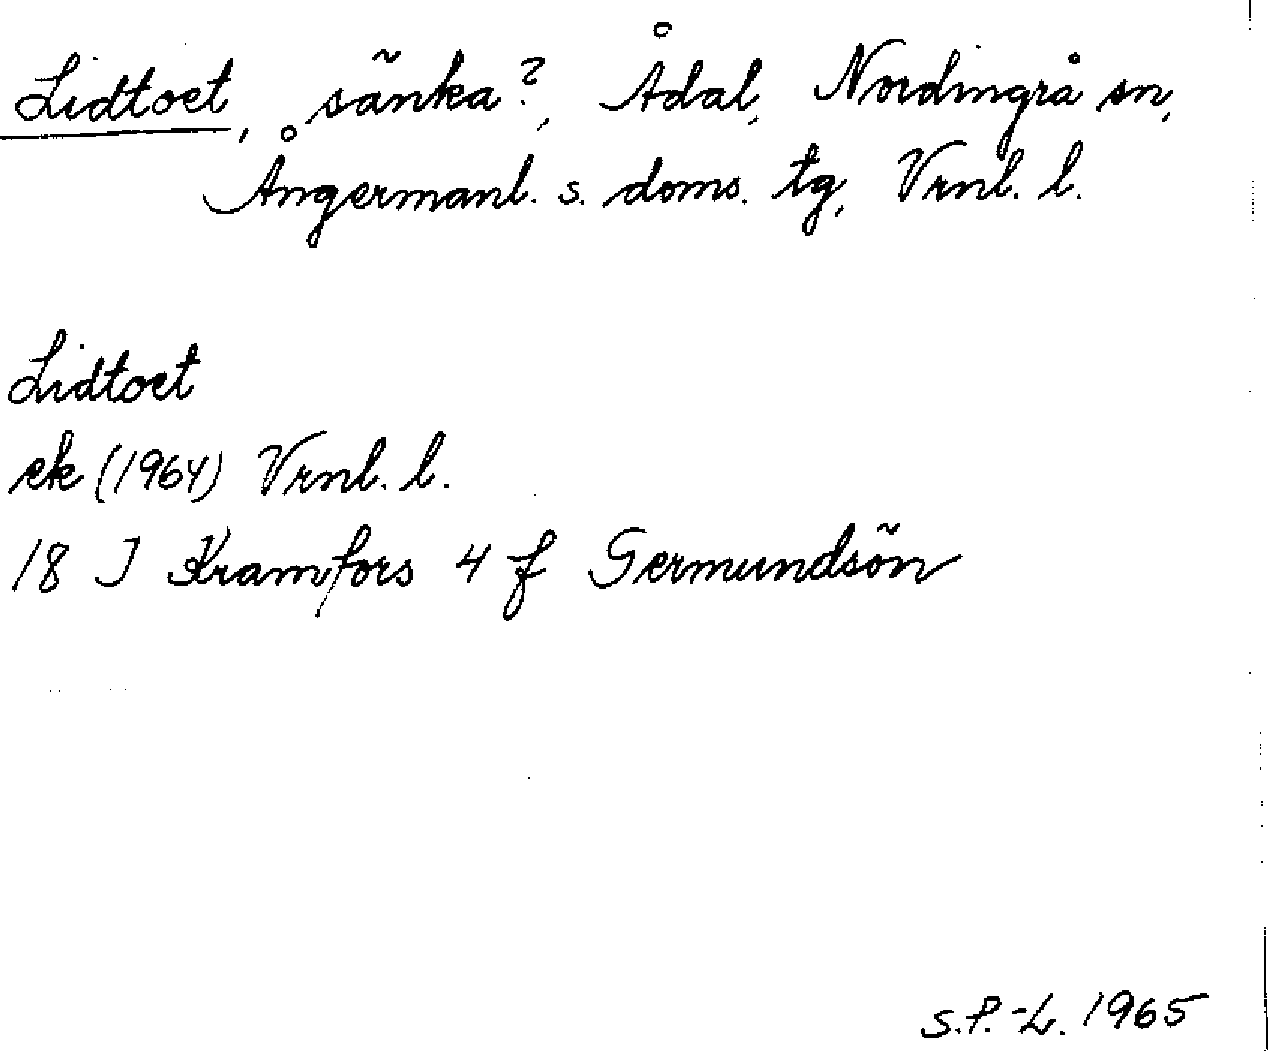 Lidtoet, sänka?, Ådal, Nordingrå sn,
Ångermanl. s. doms. tg, Vrnl. l.
Lidtoet
ek (1964) Vrnl. l.
18 J Kramfors 4 f Germundsön
S.P.-L. 1965